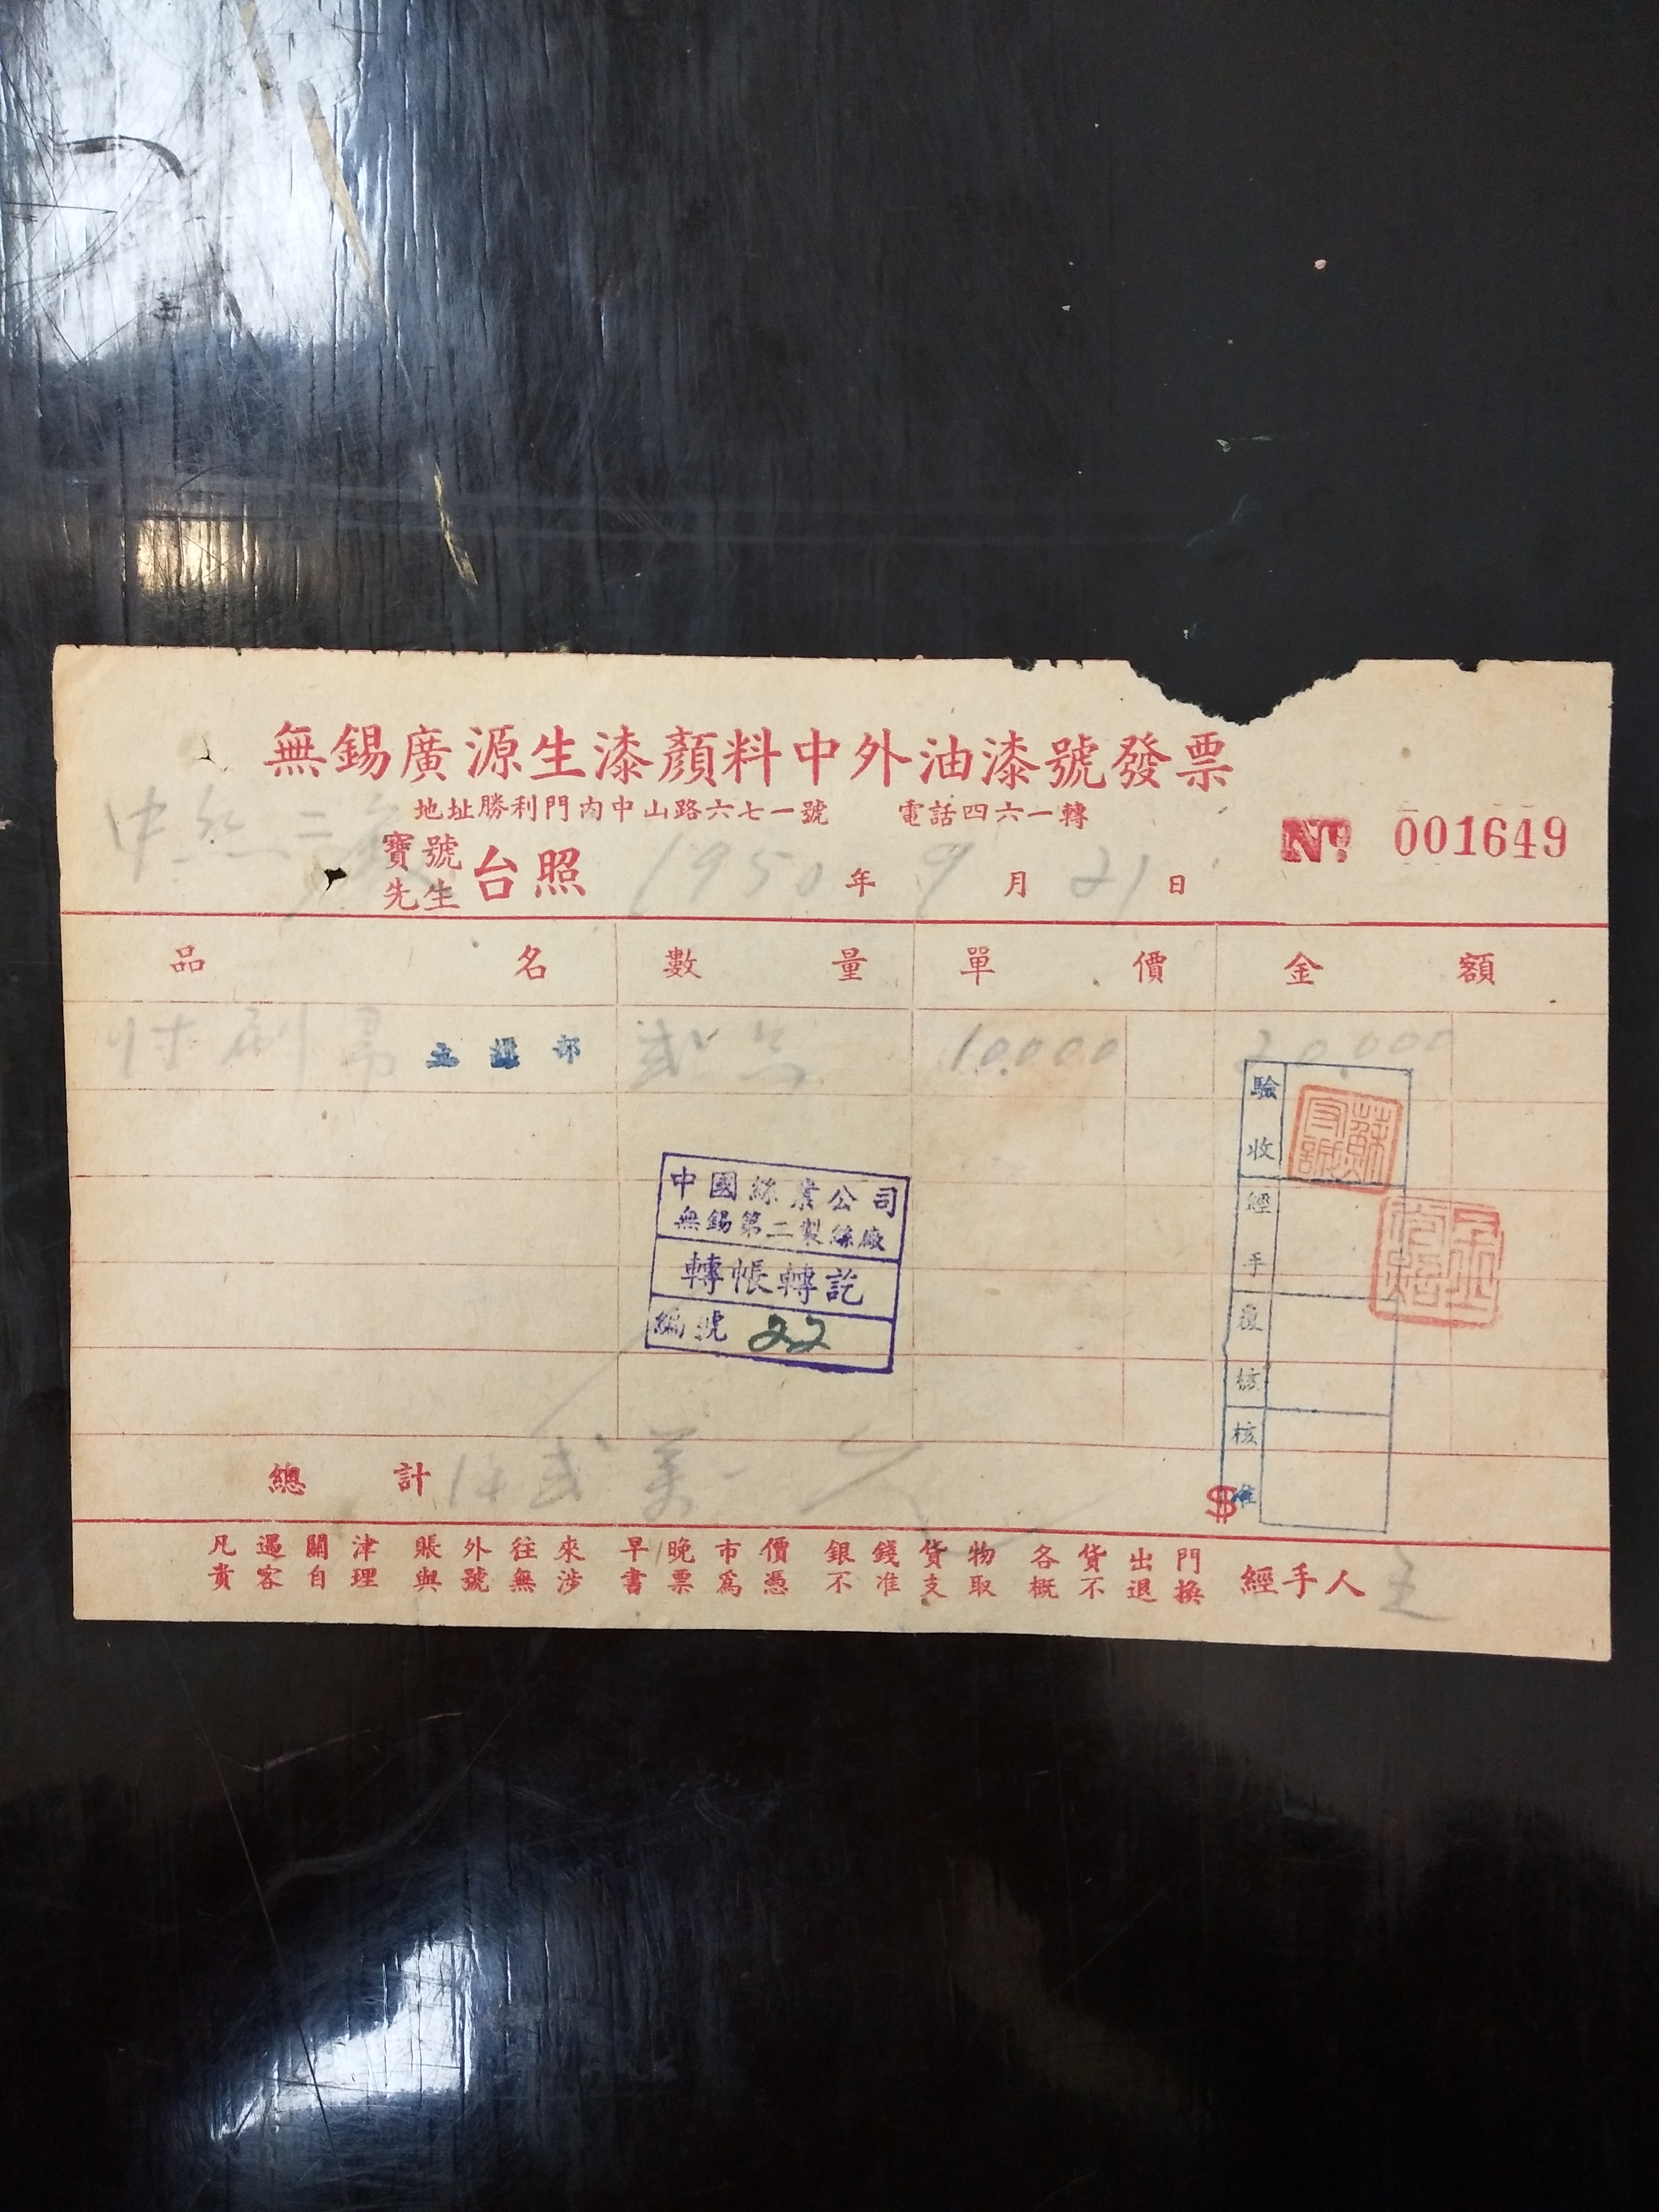 無錫廣源生漆顏料中外油漆號發票
地址勝利門內中山路六七一號 電話四六一轉
Nº 001649
中絲二
寶號
先生
台照 1950年9月21日
品名 數量 單價 金額
10.000 20.000
驗收
經手
覆核
核准
中國絲業公司
無錫第二製絲廠
轉帳轉訖
編號 22
總計 貳萬
$
凡遇關津 賬外往來 早晚市價 銀錢貨物 各貨出門
貴客自理 與號無涉 書票為憑 不准支取 概不退換
經手人 王